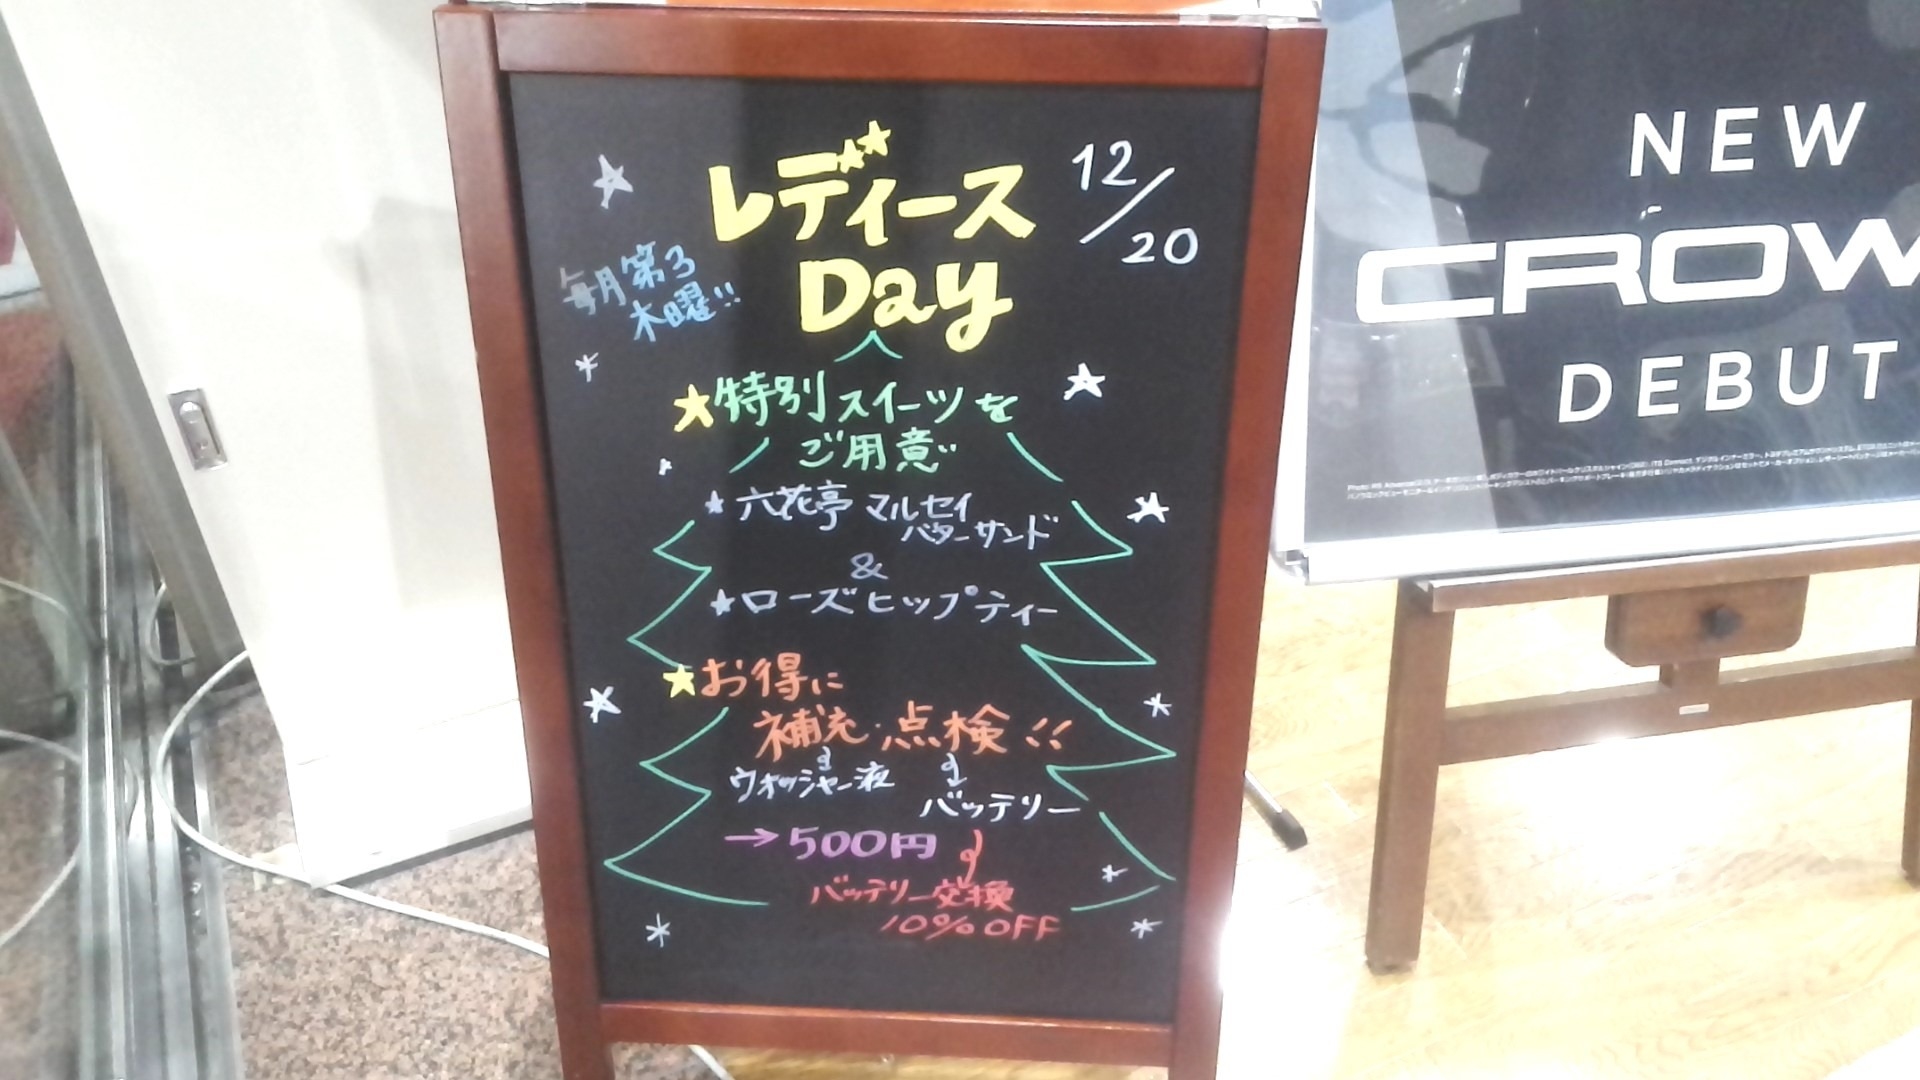 レディース
Day
12/20
毎月第3
木曜!!
★特別スイーツを
ご用意
★六花亭 マルセイ
バターサンド
&
★ローズヒップティー
★お得に
補充・点検!!
ウォッシャー液
バッテリー
→500円
バッテリー交換
10%OFF
NEW
CROW
DEBUT